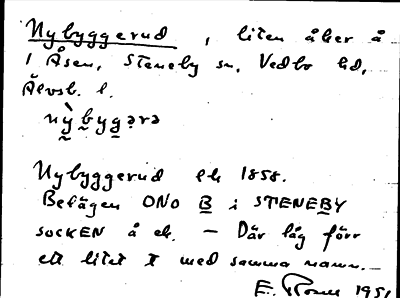 Nybyggerud, liten åker å
1 Åsen, Steneby sn, Vedbo hd,
Älvsb. l.
nỳbygərə
Nybyggerud ek 1858.
Belägen ONO B i STENEBY
SOCKEN å ek. — Där låg förr
ett litet t med samma namn. —
E. 1951